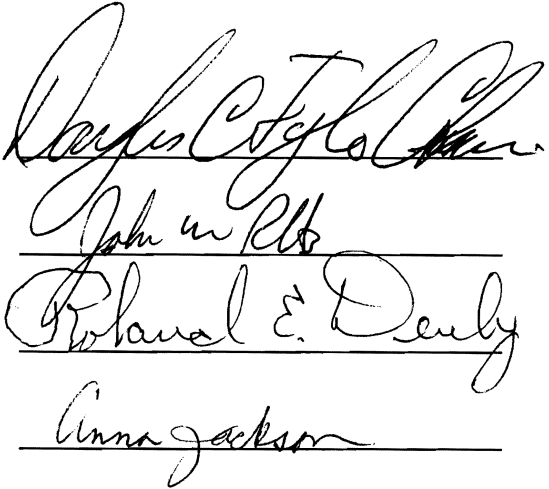 Douglas C Taylor Chair.
John M
Roland E. Derby
Anna Jackson